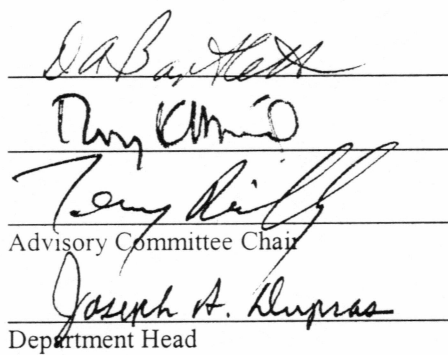 D A Bartlett
Terry Reilly
Advisory Committee Chair
Joseph A. Dupras
Department Head